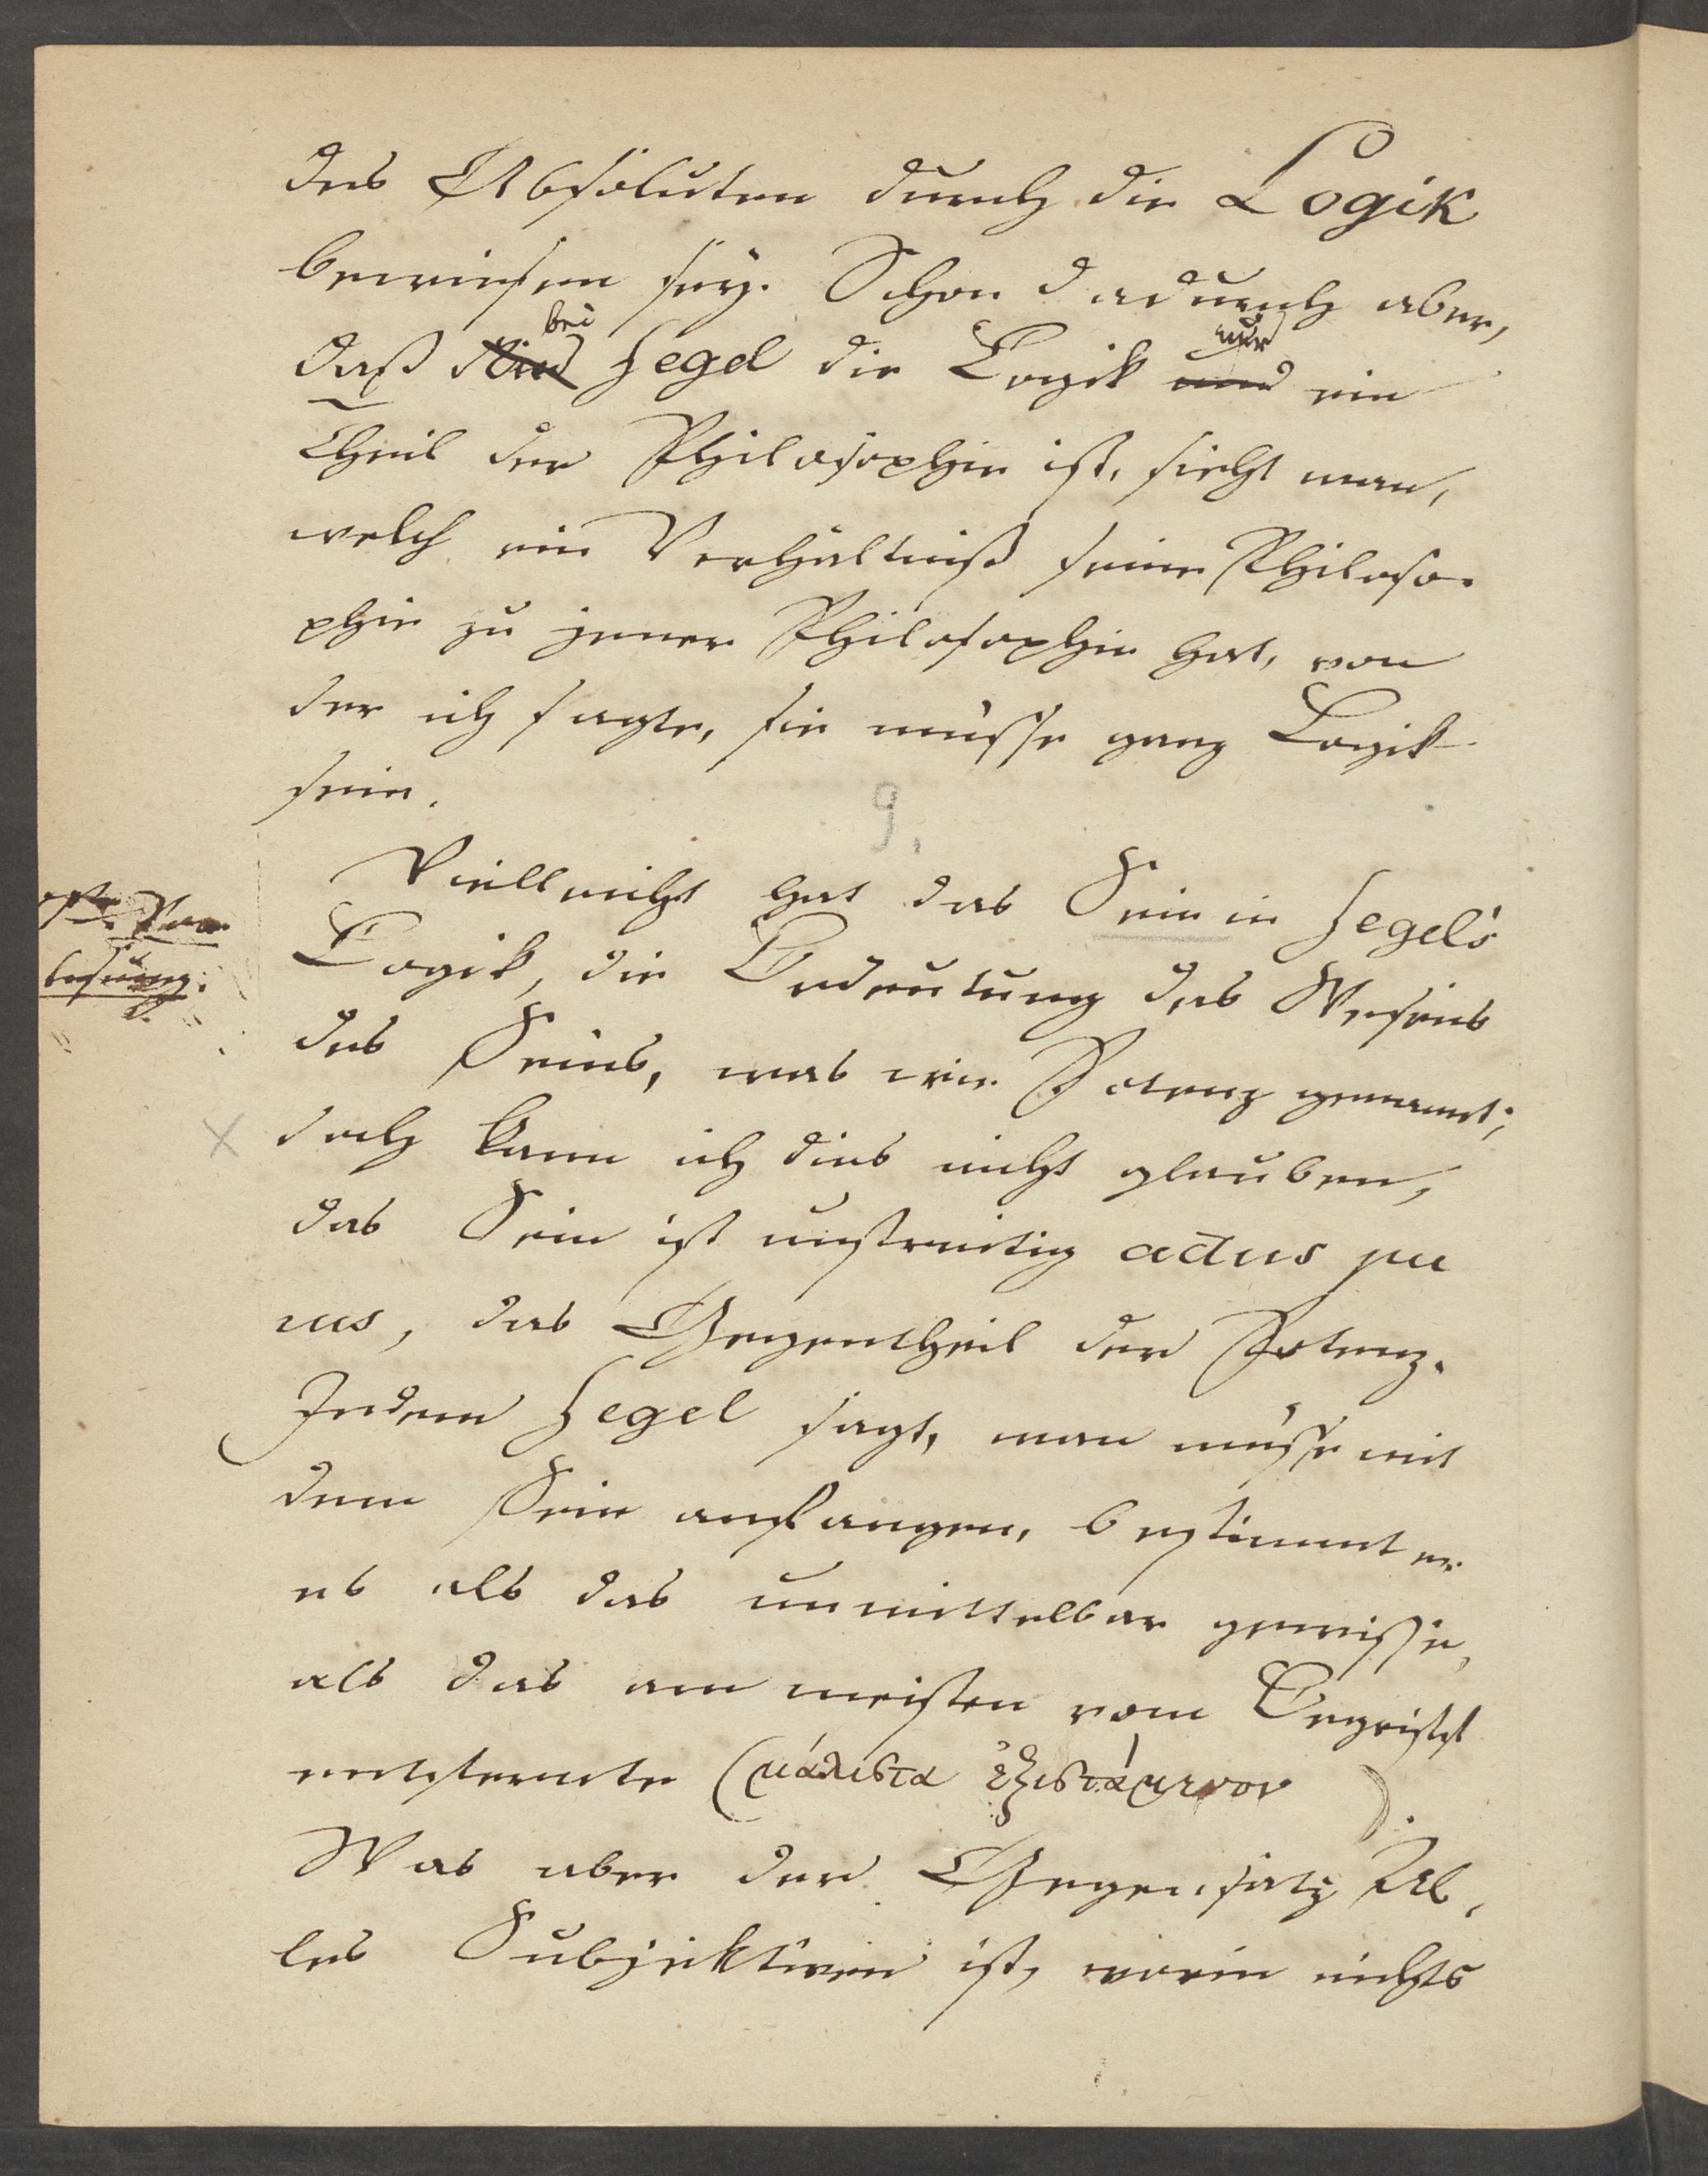 des Absoluten durch die Logik
bewiesen sey. Schon dadurch aber,
bei
nur
daß Hegel die Logik und ein
Theil der Philosophie ist, sieht man,
welch ein Verhältniß seine Philoso-
phie zu jener Philosophie hat, von
der ich sagte, sie müsse ganz Logik
sein.
9.
Vielleicht hat das Sein in Hegel's
Vor-
lesung.
Logik, die Bedeutung des Wesens
des Seins, was wir Potenz genannt;
x
doch kann ich dies nicht glauben,
das Sein ist unstreitig actus pu
rus, das Gegentheil der Potenz.
Indem Hegel sagt, man müsse mit
dem Sein anfangen, bestimmt er
es als das unmittelbar gewisse,
als das am meisten vom Begriff
entfernte (μάλιστα ἐξιστάμενον).
Was aber der Gegensatz Al-
les Subjektiven ist, worin nichts